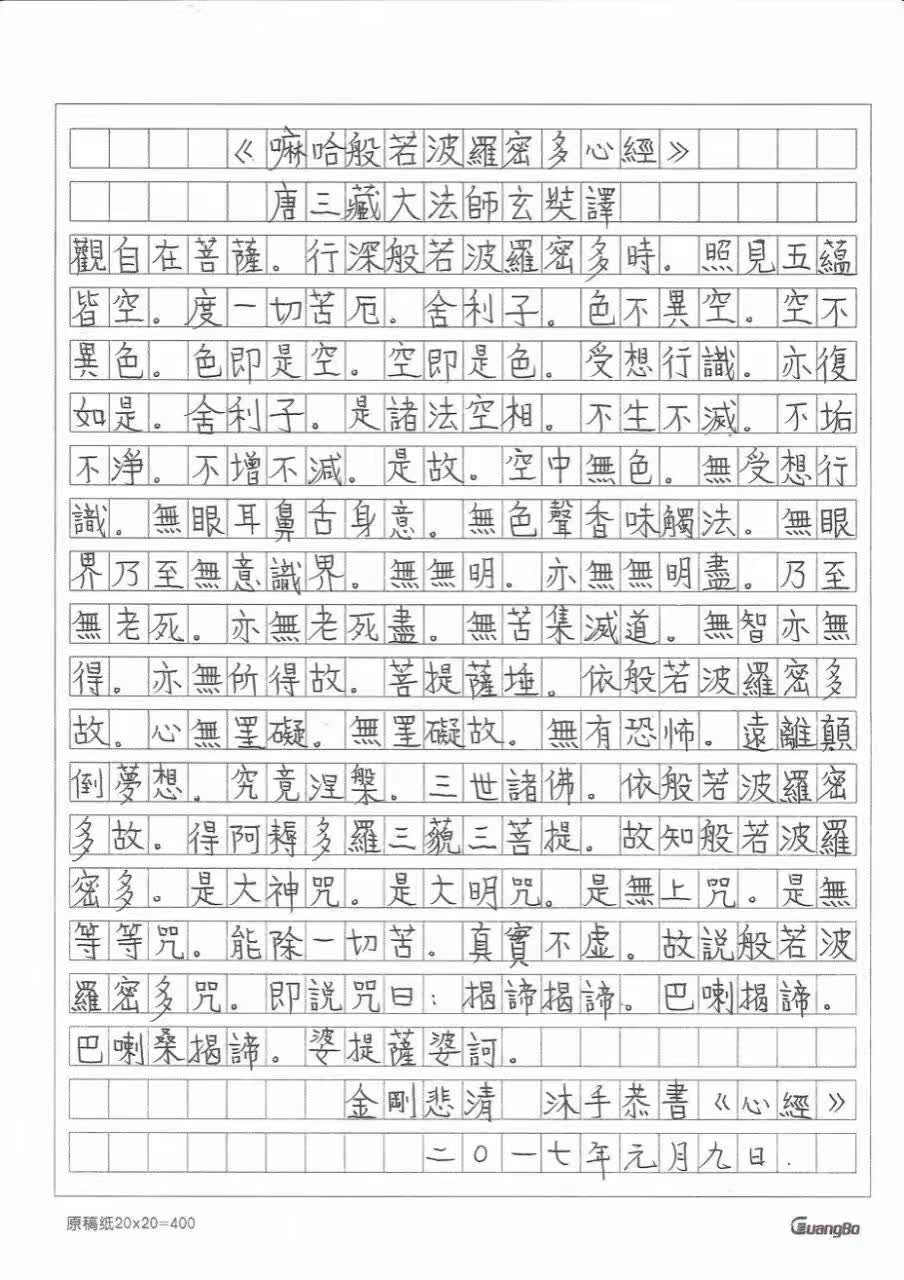 《嘛哈般若波羅密多心經》
唐三藏大法師玄奘譯
觀自在菩薩。行深般若波羅密多時。照見五蘊
皆空。度一切苦厄。舍利子。色不異空。空不
異色。色即是空。空即是色。受想行識。亦復
如是。舍利子。是諸法空相。不生不滅。不垢
不淨。不增不減。是故。空中無色。無受想行
識。無眼耳鼻舌身意。無色聲香味觸法。無眼
界乃至無意識界。無無明。亦無無明盡。乃至
無老死。亦無老死盡。無苦集滅道。無智亦無
得。亦無所得故。菩提薩埵。依般若波羅密多
故。心無罣礙。無罣礙故。無有恐怖。遠離顛
倒夢想。究竟涅槃。三世諸佛。依般若波羅密
多故。得阿耨多羅三藐三菩提。故知般若波羅
密多。是大神咒。是大明咒。是無上咒。是無
等等咒。能除一切苦。真實不虛。故說般若波
羅密多咒。即說咒曰：揭諦揭諦。巴喇揭諦。
巴喇桑揭諦。婆提薩婆訶。
金剛悲清 沐手恭書《心經》
二〇一七年元月九日.
原稿纸20×20=400
GuangBo